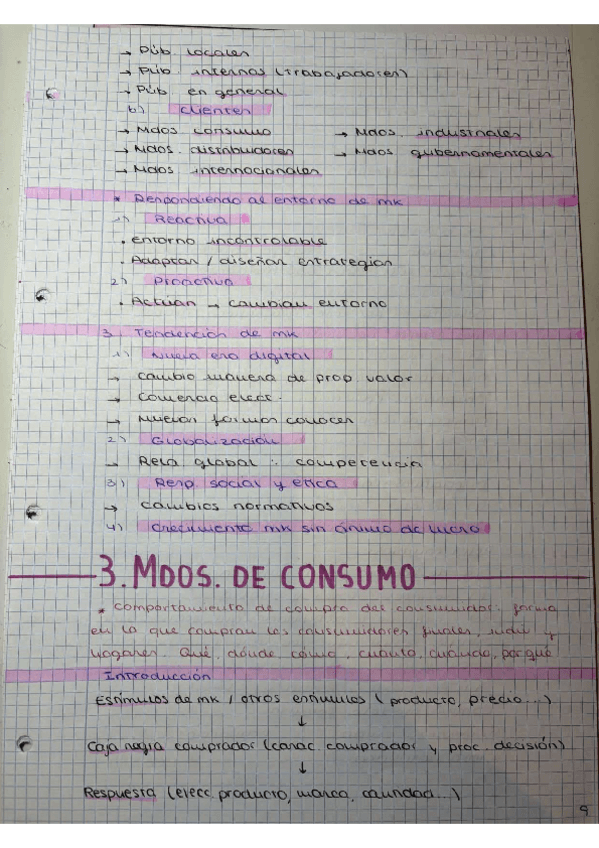 → Púb locales
→ Púb. internos (trabajadores)
→ Púb. en general
b) Clientes
→ Mdos consumo → Mdos. industriales
→ Mdos. distribuidores → Mdos gubernamentales
→ Mdos internacionales
* Respondiendo al entorno de mk
1) Reactiva
· entorno incontrolable
· Adaptan / diseñan estrategias
2) Proactiva
· Actúan → cambian entorno
3. Tendencias de mk
1) Nueva era digital
→ cambio manera de prop valor
→ Comercio elect.
→ Nuevas formas conocer
2) Globalización
→ Rela global : competencia
3) Resp. social y etica
→ cambios normativos
4) Crecimiento mk sin ánimo de lucro
3. MDOS. DE CONSUMO
* Comportamiento de compra del consumidor: forma
en la que compran los consumidores finales, indiv y
hogares. Qué, dónde, cómo, cuánto, cuándo, por qué
Introducción
Estímulos de mk / otros estímulos (producto, precio...)
↓
Caja negra comprador (carac. comprador y proc. decisión)
↓
Respuesta (elecc producto, marca, cantidad...)
9